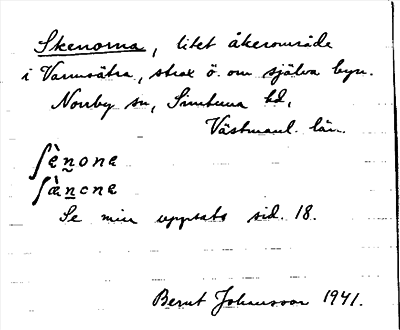 Skenorna, litet åkerområde
i Varmsätra, strax ö. om själva byn.
Norrby sn, Simtuna hd,
Västmanl. län.
ʃènone
ʃæ̀ncne
Se min uppsats sid. 18.
Bernt Johansson 1941.